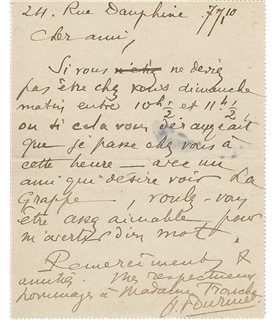 24. Rue Dauphine 7/7/10
Cher ami,
Si vous n'étiez ne deviez
pas être chez vous dimanche
matin entre 10h ½ et 11h ½,
ou si cela vous dérangeait
que je passe chez vous à
cette heure — avec un
ami qui désire voir La
Grappe, voulez-vous
être assez aimable pour
m'avertir d'un mot,
Remerciements &
amitiés. Mes respectueux
hommages à Madame